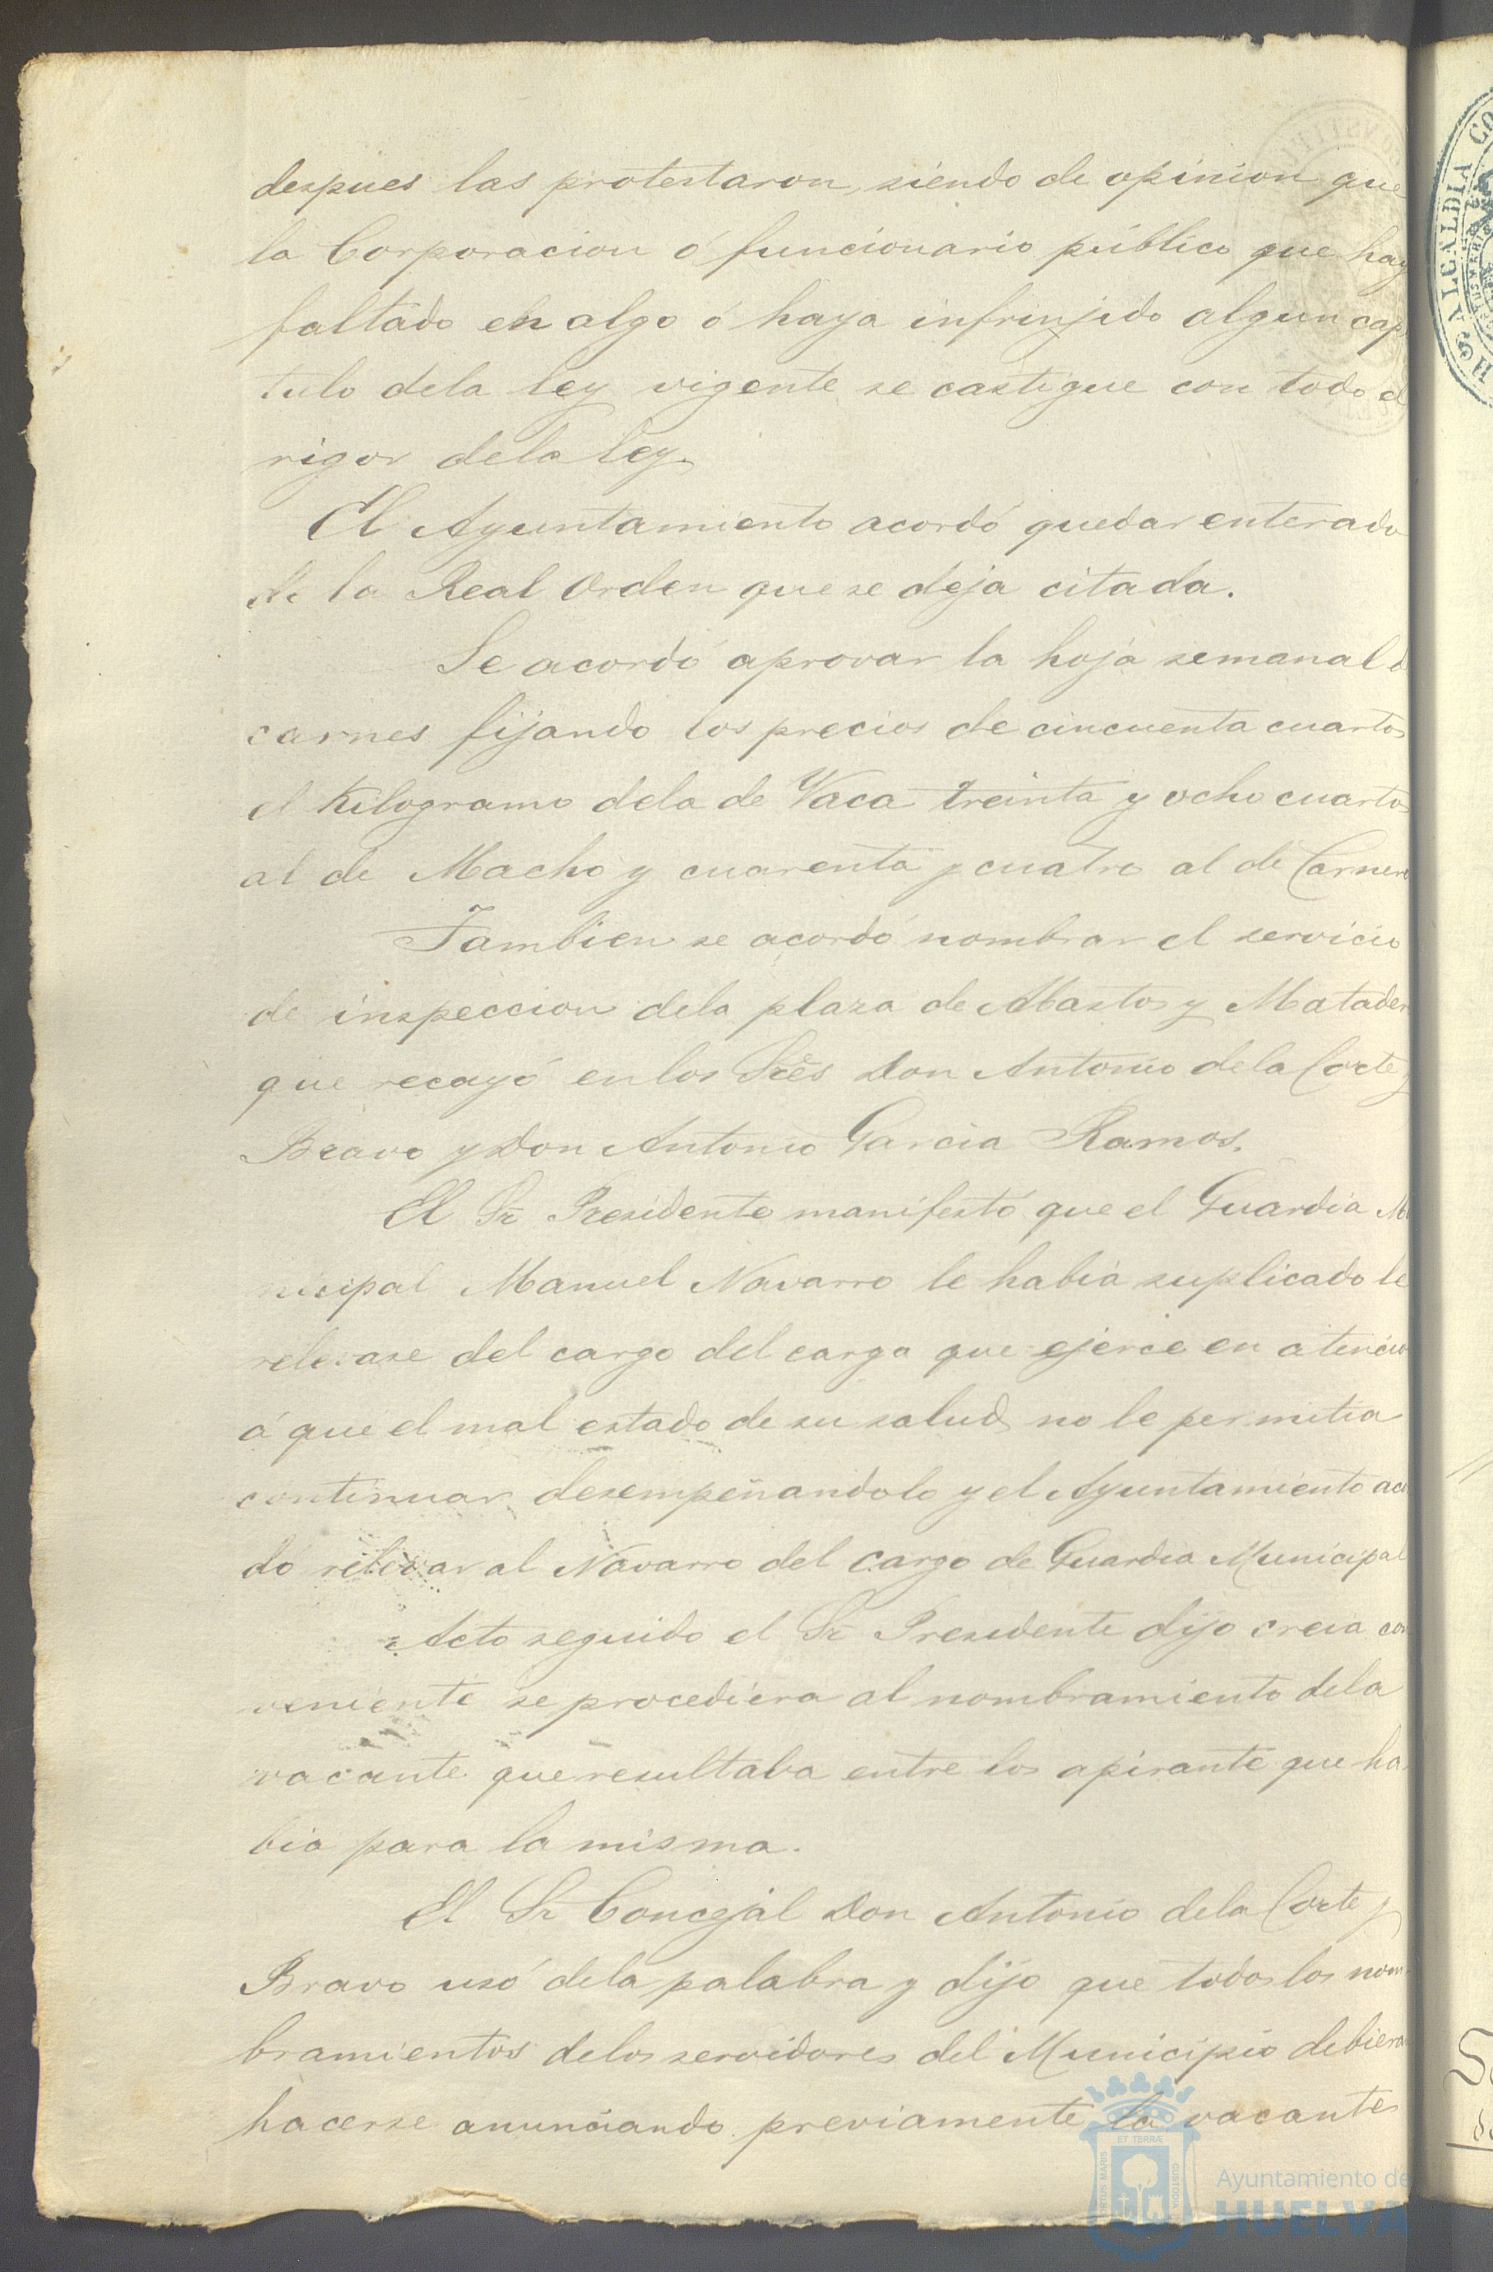 despues las protestaron, siendo de opinion que
la Corporacion ó funcionario público que hay
faltado en algo ó haya infrinjido algun cap
tulo dela ley vigente se castigue con todo el
rigor dela ley.
El Ayuntamiento acordó quedar enterado
de la Real Orden que se deja citada.
Se acordó aprovar la hoja semanal d
carnes fijando los precios de cincuenta cuartos
el Kilogramo dela de Vaca treinta y ocho cuartos
al de Macho y cuarenta y cuatro al de Carnero
Tambien se acordó nombrar el servicio
de inspeccion dela plaza de Abastos y Matader
que recayó en los Sres Don Antonio dela Corte y
Bravo y Don Antonio Garcia Ramos.
El Sr Presidente manifestó que el Guardia M
nicipal Manuel Navarro le habia suplicado le
relevase del cargo del cargo que ejerce en atencio
á que el mal estado de su salud no le permitia
continuar desempeñandolo y el Ayuntamiento acor
dó relevar al Navarro del cargo de Guardia Municipal
Acto seguido el Sr Presidente dijo creia con
veniente se procediera al nombramiento dela
vacante que resultaba entre los apirante que ha
bia para la misma.
El Sr Concejal Don Antonio dela Corte y
Bravo usó dela palabra y dijo que todos los nom
bramientos delos servidores del Municipio debiera
hacerse anunciando previamente la vacante
Ayuntamiento de
HUELVA
ALCALDIA CO